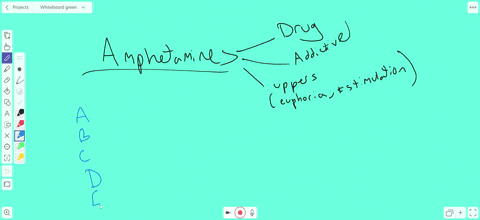 Projects Whiteboard green
Drug
Amphetamine
Addictive
uppers
(euphoria, +stimulation)
A
B
C
D
E